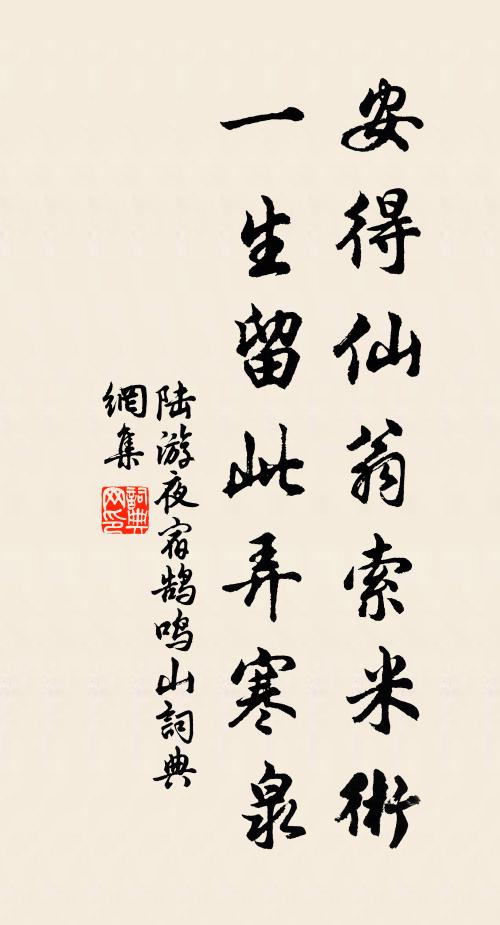 安得仙翁索米術
一生留此弄寒泉
陆游夜宿鹄鸣山詞典
網集
詞典
网印